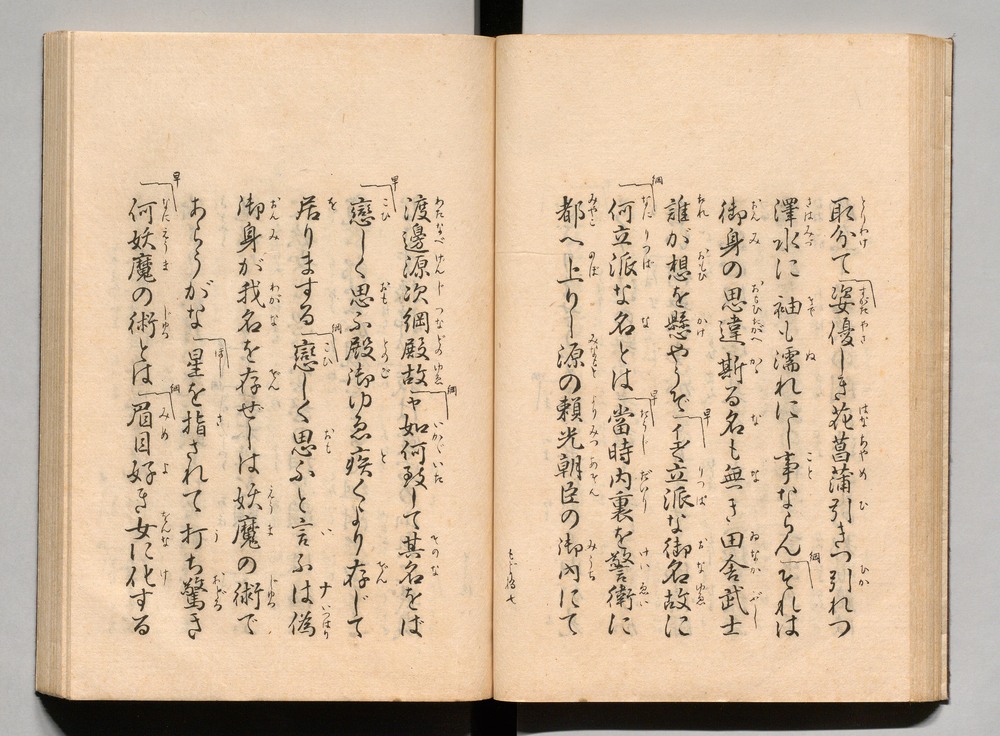 取分て姿優しき花菖蒲引きつ引れつ
澤水に袖も濡れにし事ならん それは
御身の思違斯る名も無き田舎武士
誰が想を懸やうぞ イヤ立派な御名故に
何立派な名とは 當時内裏を警衛に
都へ上りし源の頼光朝臣の御内にて
渡邊源次綱殿故 ヤ如何致して其名をば
戀しく思ふ殿御ゆゑ疾くより存じて
居りまする 戀しく思ふと言ふは偽
御身が我名を存ぜしは妖魔の術で
あらうがな 星を指されて打ち驚き
何妖魔の術とは 眉目好き女に化する